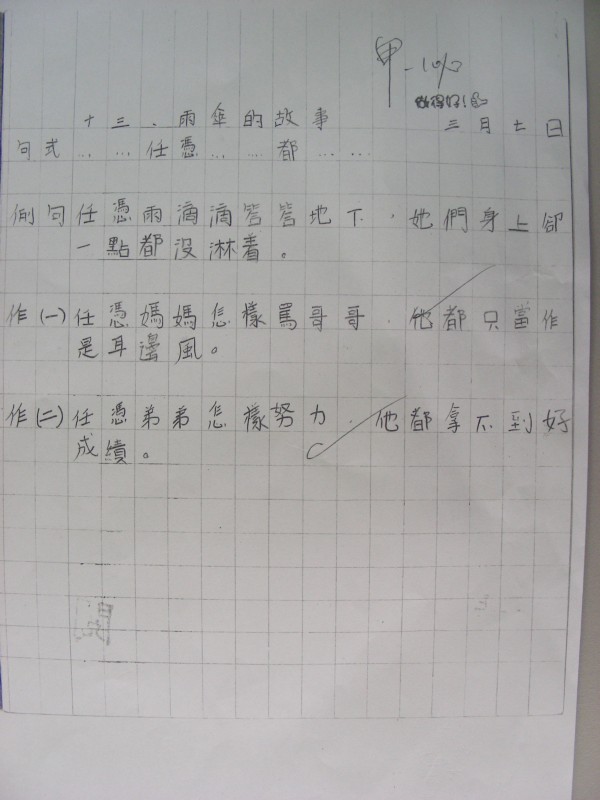 甲
做得好!
十三．雨傘的故事 三月七日
句式 ……任憑……都……
例句任憑雨滴滴答答地下，她們身上卻
一點都沒淋着。
作(一)任憑媽媽怎樣罵哥哥，他都只當作
是耳邊風。
作(二)任憑弟弟怎樣努力，他都拿不到好
成績。